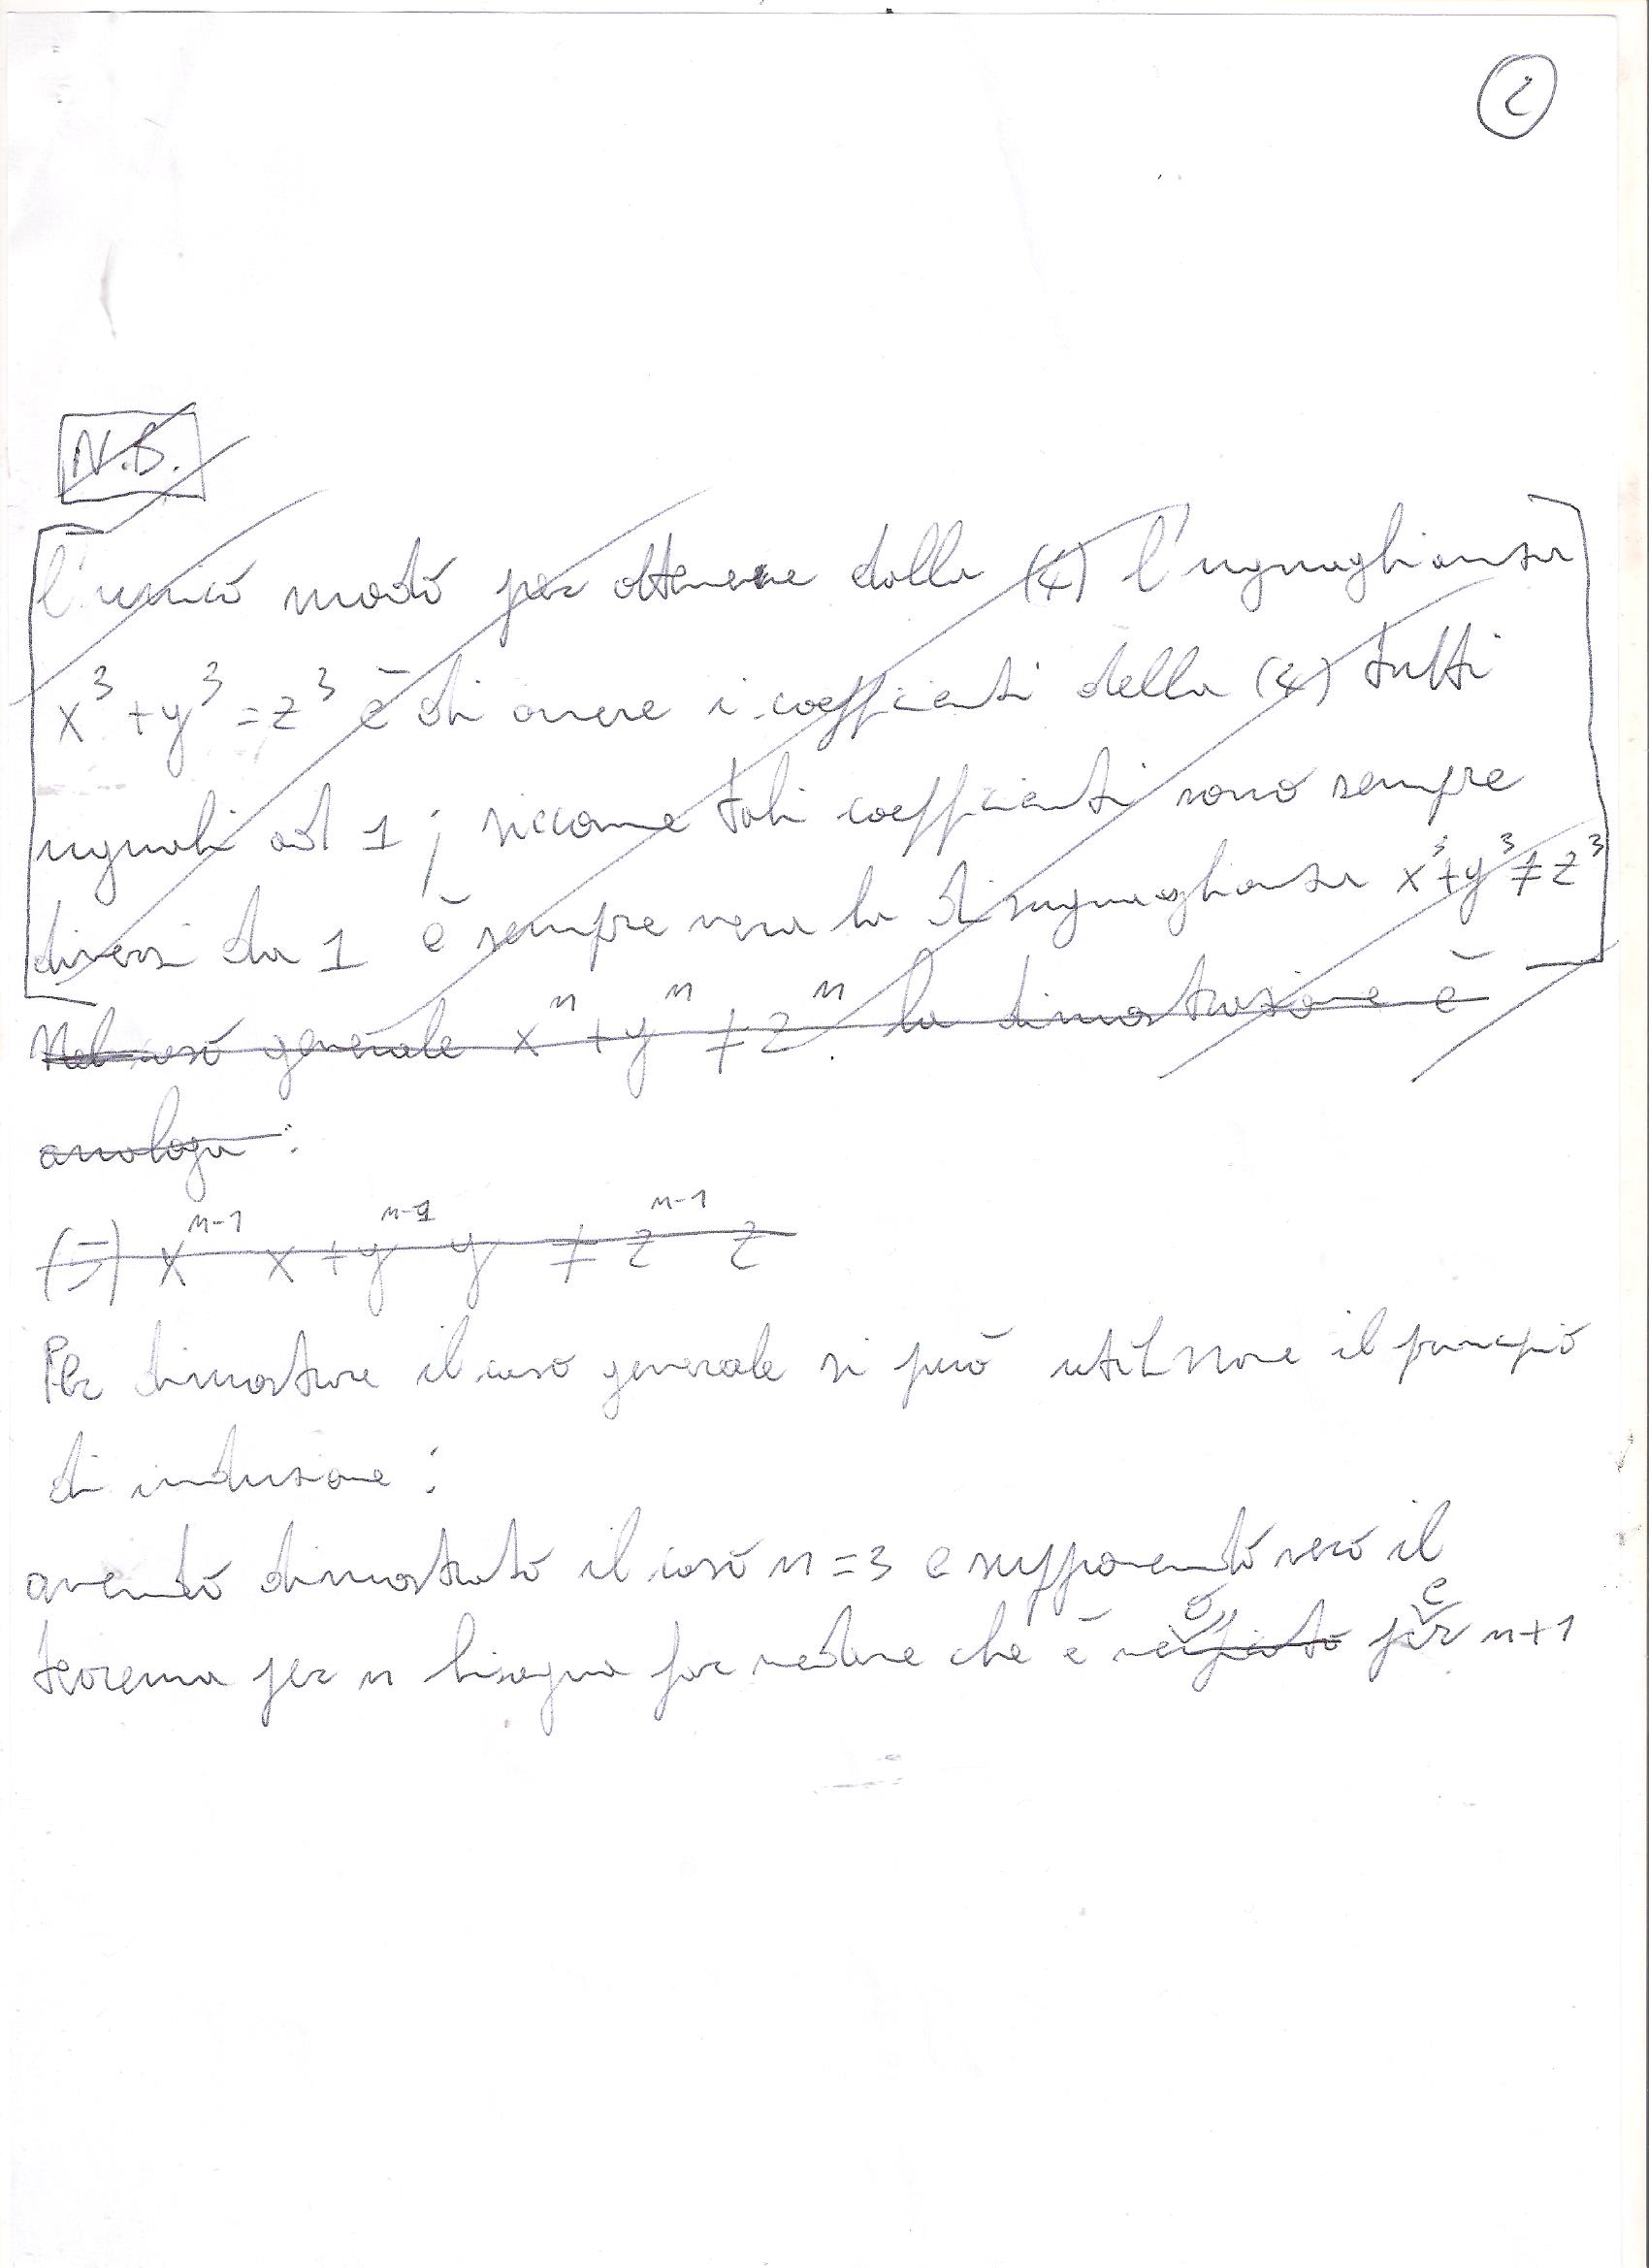 2
N.B.
l'unico modo per ottenere dalla (4) l'uguaglianza
x³ + y³ = z³ è di avere i coefficienti della (4) tutti
uguali ad 1 ; siccome tali coefficienti sono sempre
diversi da 1 è sempre vera la disuguaglianza x³ + y³ ≠ z³
Nel caso generale xⁿ + yⁿ ≠ zⁿ la dimostrazione è
analoga :
(=) xⁿ⁻¹ x + yⁿ⁻¹ y ≠ zⁿ⁻¹ z
Per dimostrare il caso generale si può utilizzare il principio
di induzione :
avendo dimostrato il caso n = 3 e supponendo vero il
teorema per n bisogna far vedere che è verificato per n+1